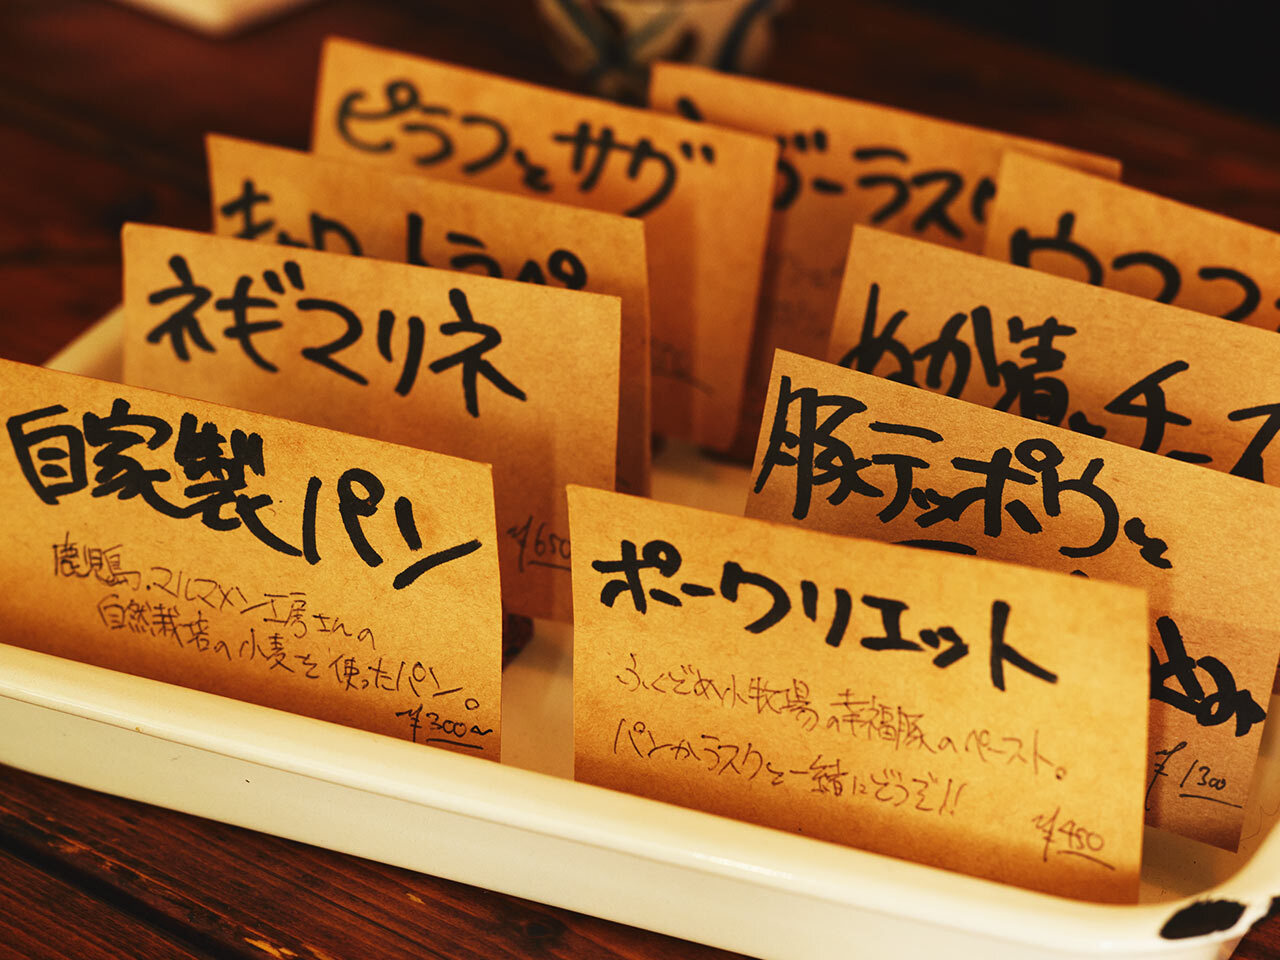 ピラフとサヴ
ガーラスク
キャロットラペ
ウフフ
ネギマリネ
¥650
ぬか漬とチーズ
自家製パン
鹿児島・マルマメン工房さんの
自然栽培の小麦を使ったパン。
¥300〜
豚テッポウと
¥1300
ポークリエット
ふくどめ小牧場の幸福豚のペースト。
パンかラスクと一緒にどうぞ!!
¥450